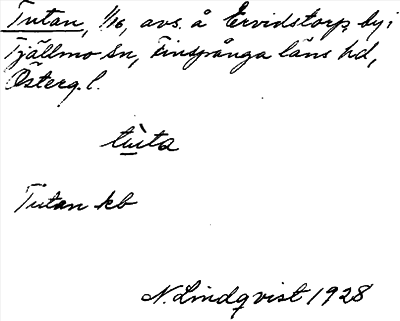 Tutan, 1/16, avs. å Ervidstorps by i
Tjällmo sn, Finspånga läns hd,
Österg. l.
tùta
Tutan kb
N. Lindqvist 1928